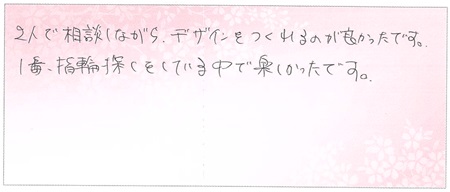 2人で相談しながら、デザインをつくれるのが良かったです。
1番、指輪探しをしている中で楽しかったです。